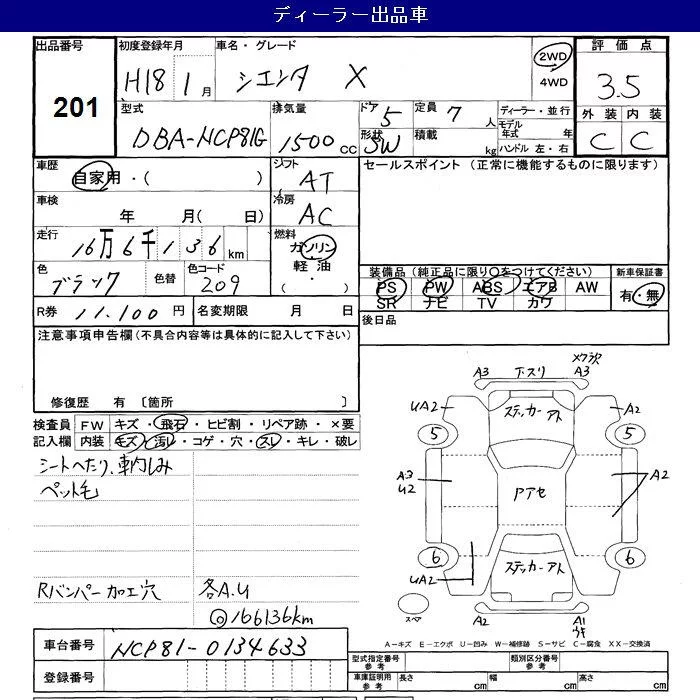 ディーラー出品車
出品番号
201
初度登録年月
H18 1月
車名・グレード
シエンタ X
2WD
4WD
評価点
3.5
外装 内装
C C
型式
DBA-NCP81G
排気量
1500 cc
ドア
5
定員 7 人
形状
SW
積載 kg
ディーラー・並行
モデル
年式 年
ハンドル 左・右
車歴
自家用・( )
シフト
AT
セールスポイント (正常に機能するものに限ります)
車検
年 月( 日)
冷房
AC
走行
16万6千136km
燃料
ガソリン
軽油
( ・ )
色
ブラック
色替
色コード
209
装備品 (純正品に限り○をつけてください)
PS PW ABS エアB AW
SR ナビ TV カワ
新車保証書
有・無
R券 11,100 円
名変期限 月 日
後日品
注意事項申告欄(不具合内容等は具体的に記入して下さい)
修復歴 有 〔箇所 〕
検査員
記入欄
FW キズ・飛石・ヒビ割・リペア跡・×要
内装 キズ・汚レ・コゲ・穴・スレ・キレ・破レ
シートへたり、車内しみ
ペット毛
Rバンパー加工穴 各A.U
◎166136km
A3 下スリ A3
UA2 ステッカーアト A2
5 5
A3
U2
PアセA2
6 6
UA2
ステッカーアト
スペア
A2 A1
A-キズ E-エクボ U-凹み W-補修跡 S-サビ C-腐食 XX-交換済
車台番号 NCP81-0134633
登録番号
型式指定番号
参考
類別区分番号
参考
車庫証明用
参考
長さ cm 幅 cm 高さ cm